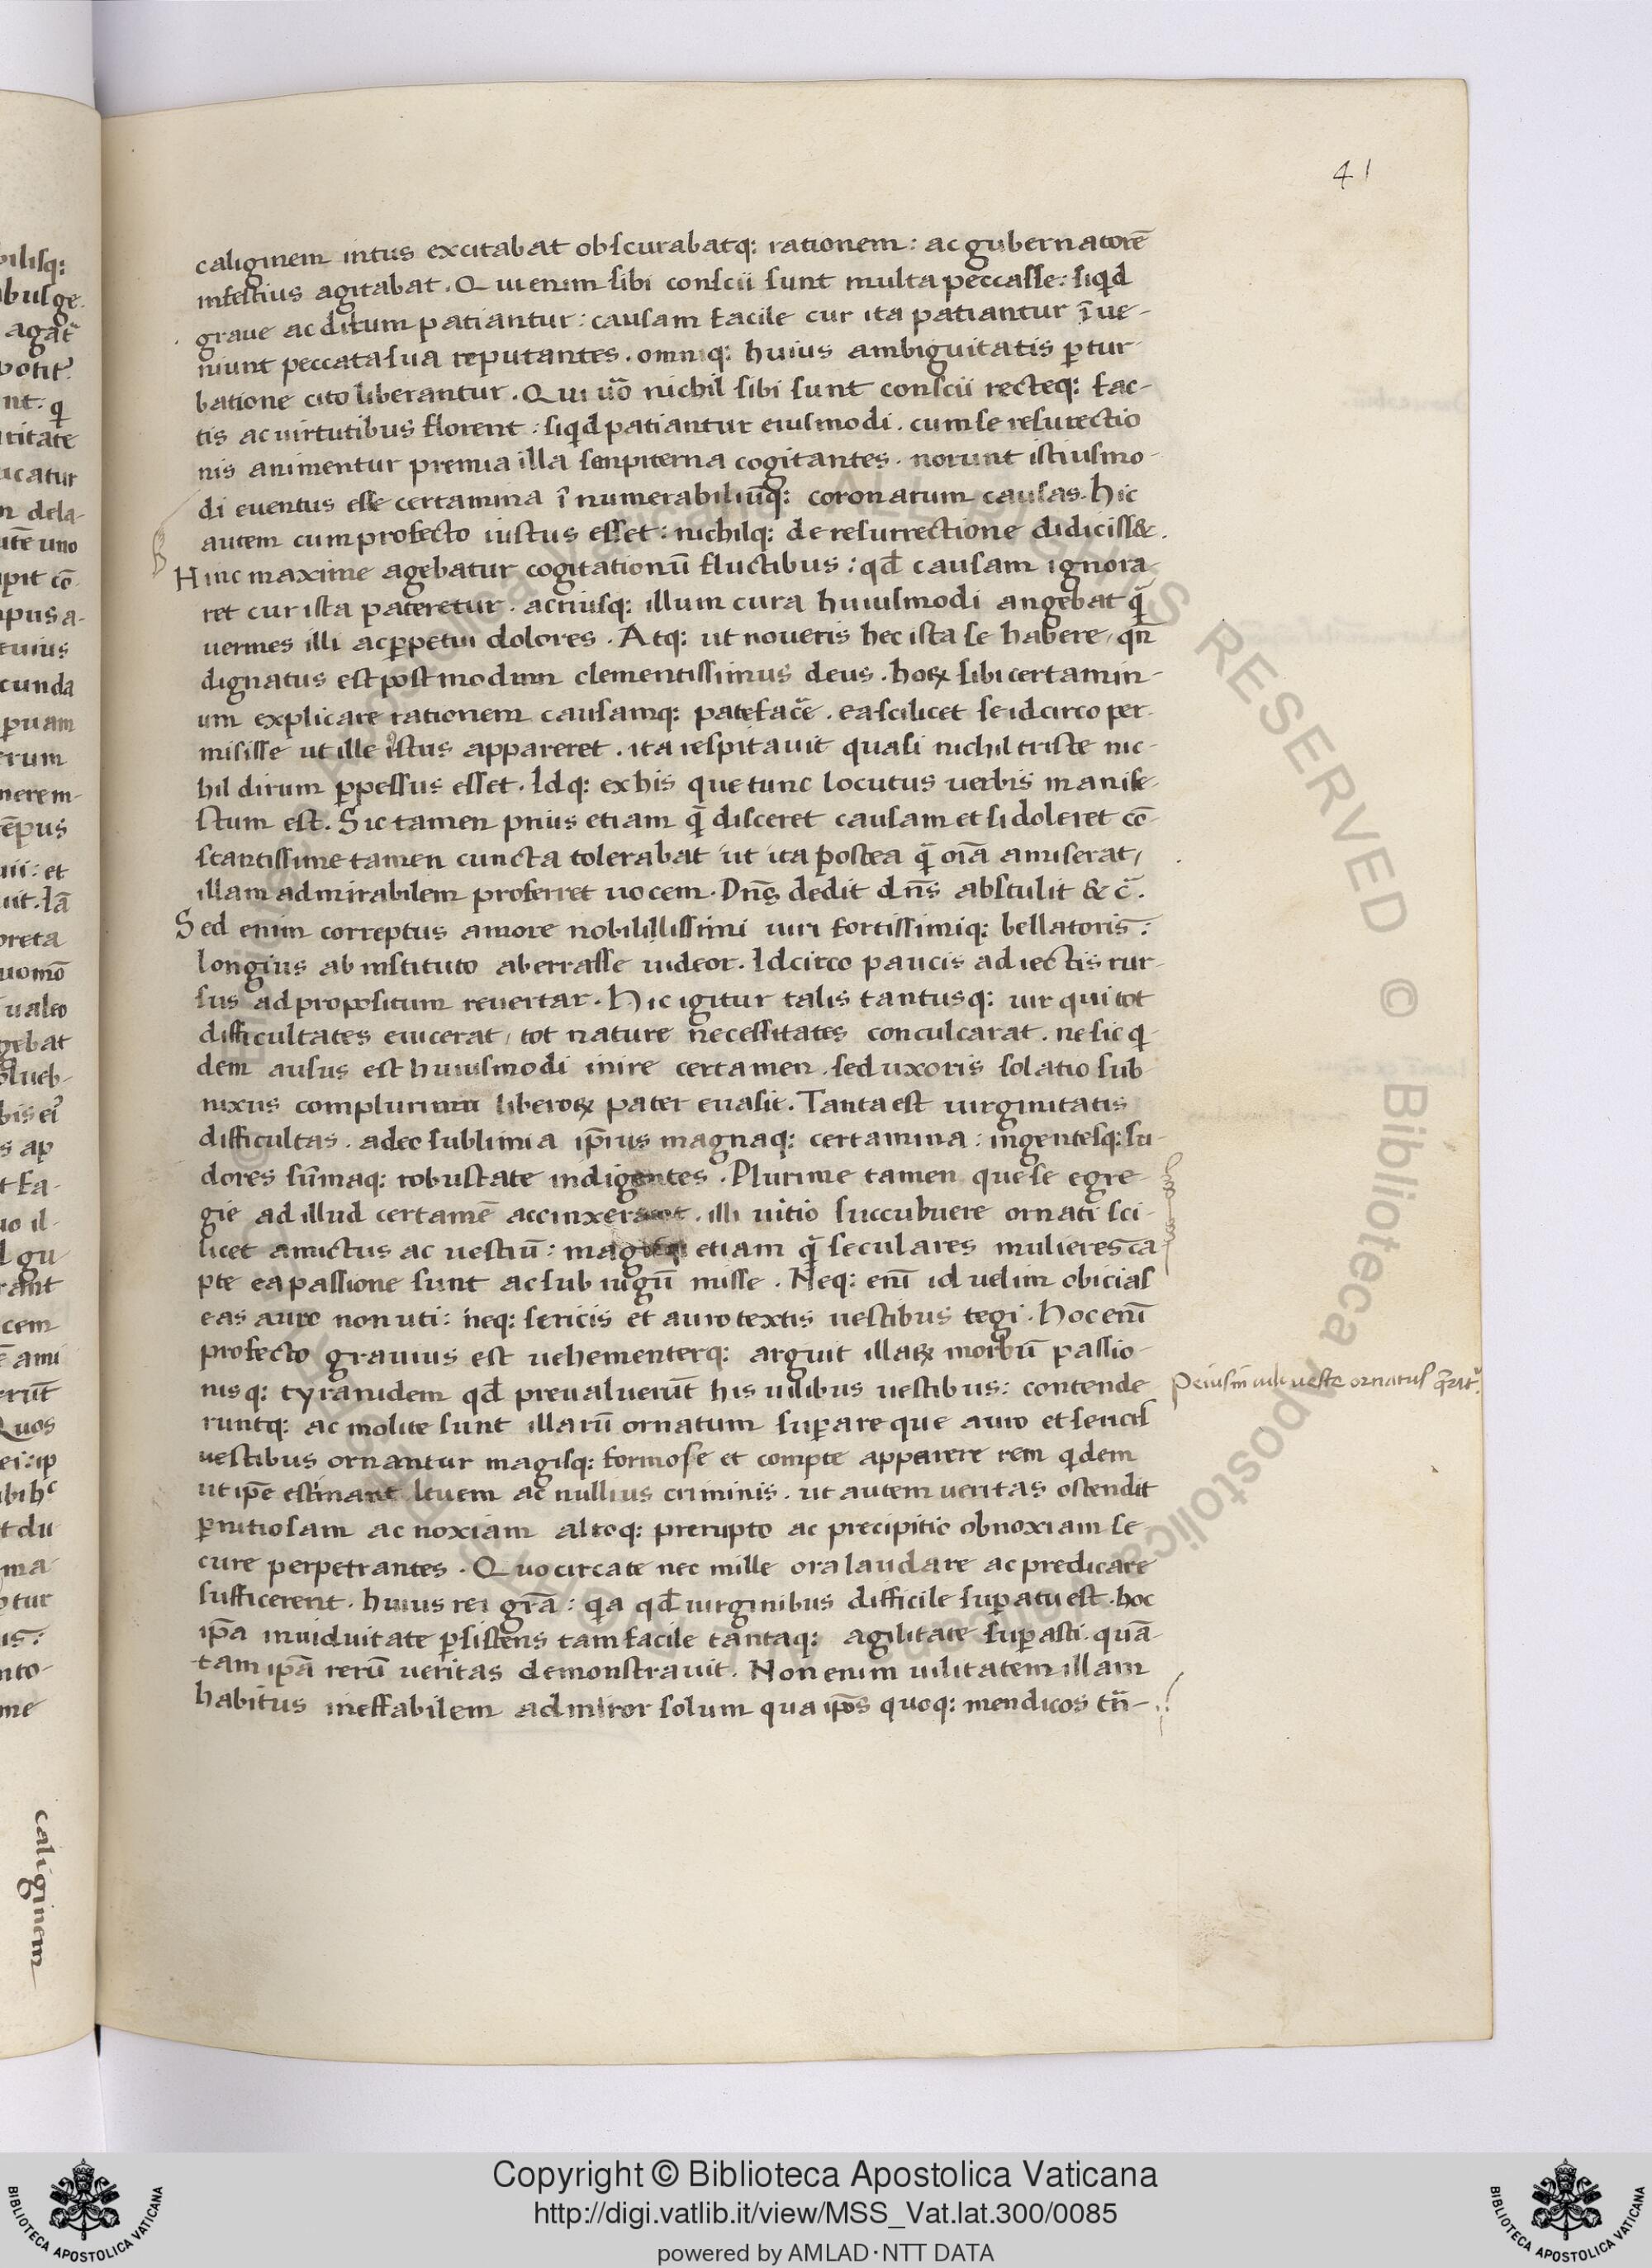 41
caliginem intus excitabat obscurabatq: rationem: ac gubernatorē
infestius agitabat. Qui enim sibi conscii sunt multa peccasse: siqd
graue ac dirum patiantur: causam facile cur ita patiantur īue-
niunt peccata sua reputantes. omniq: huius ambiguitatis ꝑtur
batione cito liberantur. Qui uo᷑ nichil sibi sunt conscii recteq: fac-
tis ac uirtutibus florent: siqd patiantur eiusmodi. cum se resurectio
nis animentur premia illa senpiterna cogitantes. norunt istiusmo-
di euentus esse certamina īnumerabiliūq: coronarum causas. Hic
autem cum profecto iustus esset: nichilq: de resurrectione didiciss&.
Hinc maxime agebatur cogitationū fluctibus: qđ causam ignora
ret cur ista pateretur. acriusq: illum cura huiusmodi angebat q̄
uermes illi ac ꝑpetui dolores. Atq: ut noueris hec ista se habere, qn̄
dignatus est postmodum clementissimus deus. hoꝝ sibi certamin-
um explicare rationem causamq: patefac̄e. ea scilicet se idcirco per-
misisse ut ille istus appareret. ita respirauit quasi nichil triste nic-
hil dirum ꝑpessus esset. Idq: ex his que tunc locutus uerbis manife-
stum est. Sic tamen prius etiam q̄ disceret causam et si doleret cō-
stantissime tamen cuncta tolerabat ut ita postea q̄ oīa amiserat,
illam admirabilem proferret uocem. Dn̄s dedit dn̄s abstulit & c̄.
Sed enim correptus amore nobilillissimi uiri fortissimiq: bellatoris:
longius ab instituto aberrasse uideor. Idcirco paucis adiectis rur-
sus ad propositum reuertar. Hic igitur talis tantusq: uir qui tot
difficultates euicerat, tot nature necessitates conculcarat. ne sic q
dem ausus est huiusmodi inire certamen. sed uxoris solatio sub-
nixus complurimū liberoꝝ pater euasit. Tanta est uirginitatis
difficultas. adeo sublimia ip̄ius magnaq: certamina: ingentesq: su-
dores sūmaq: robustate indigentes. Plurime tamen que se egre-
gie ad illud certamē accinxerant. illi uitio succubuere ornati sci-
licet amictus ac uestiū: magisq: etiam q̄ seculares mulieres ca
pte ea passione sunt ac sub iugū misse. Neq: enī id uelim obicias
eas auro non uti: neq: sericis et auro textis uestibus tegi. Hoc enī
profecto grauius est uehementerq: arguit illaꝝ morbū passio-
nisq: tyranidem qđ preualuerūt his uilibus uestibus: contende
runtq: ac molite sunt illarū ornatum suꝑare que auro et sericis
uestibus ornantur magisq: formose et compte apparere rem qdem
ut ip̄e estimant leuem ac nullius criminis. ut autem ueritas ostendit
ꝑnitiosam ac noxiam altoq: prerupto ac precipitio obnoxiam se-
cure perpetrantes. Quocirca te nec mille ora laudare ac predicare
sufficerent. huius rei grā: qa qđ uirginibus difficile suꝑatu est. hoc
ip̄a in uiduitate ꝑsistens tam facile tantaq: agilitate suꝑasti. quā-
tam ip̄a rerū ueritas demonstrauit. Non enim uilitatem illam
habitus ineffabilem admiror solum qua ip̄os quoq: mendicos tn̄-
uili ueste ornatus
caliginem
Copyright © Biblioteca Apostolica Vaticana
http://digi.vatlib.it/view/MSS_Vat.lat.300/0085
powered by AMLAD·NTT DATA